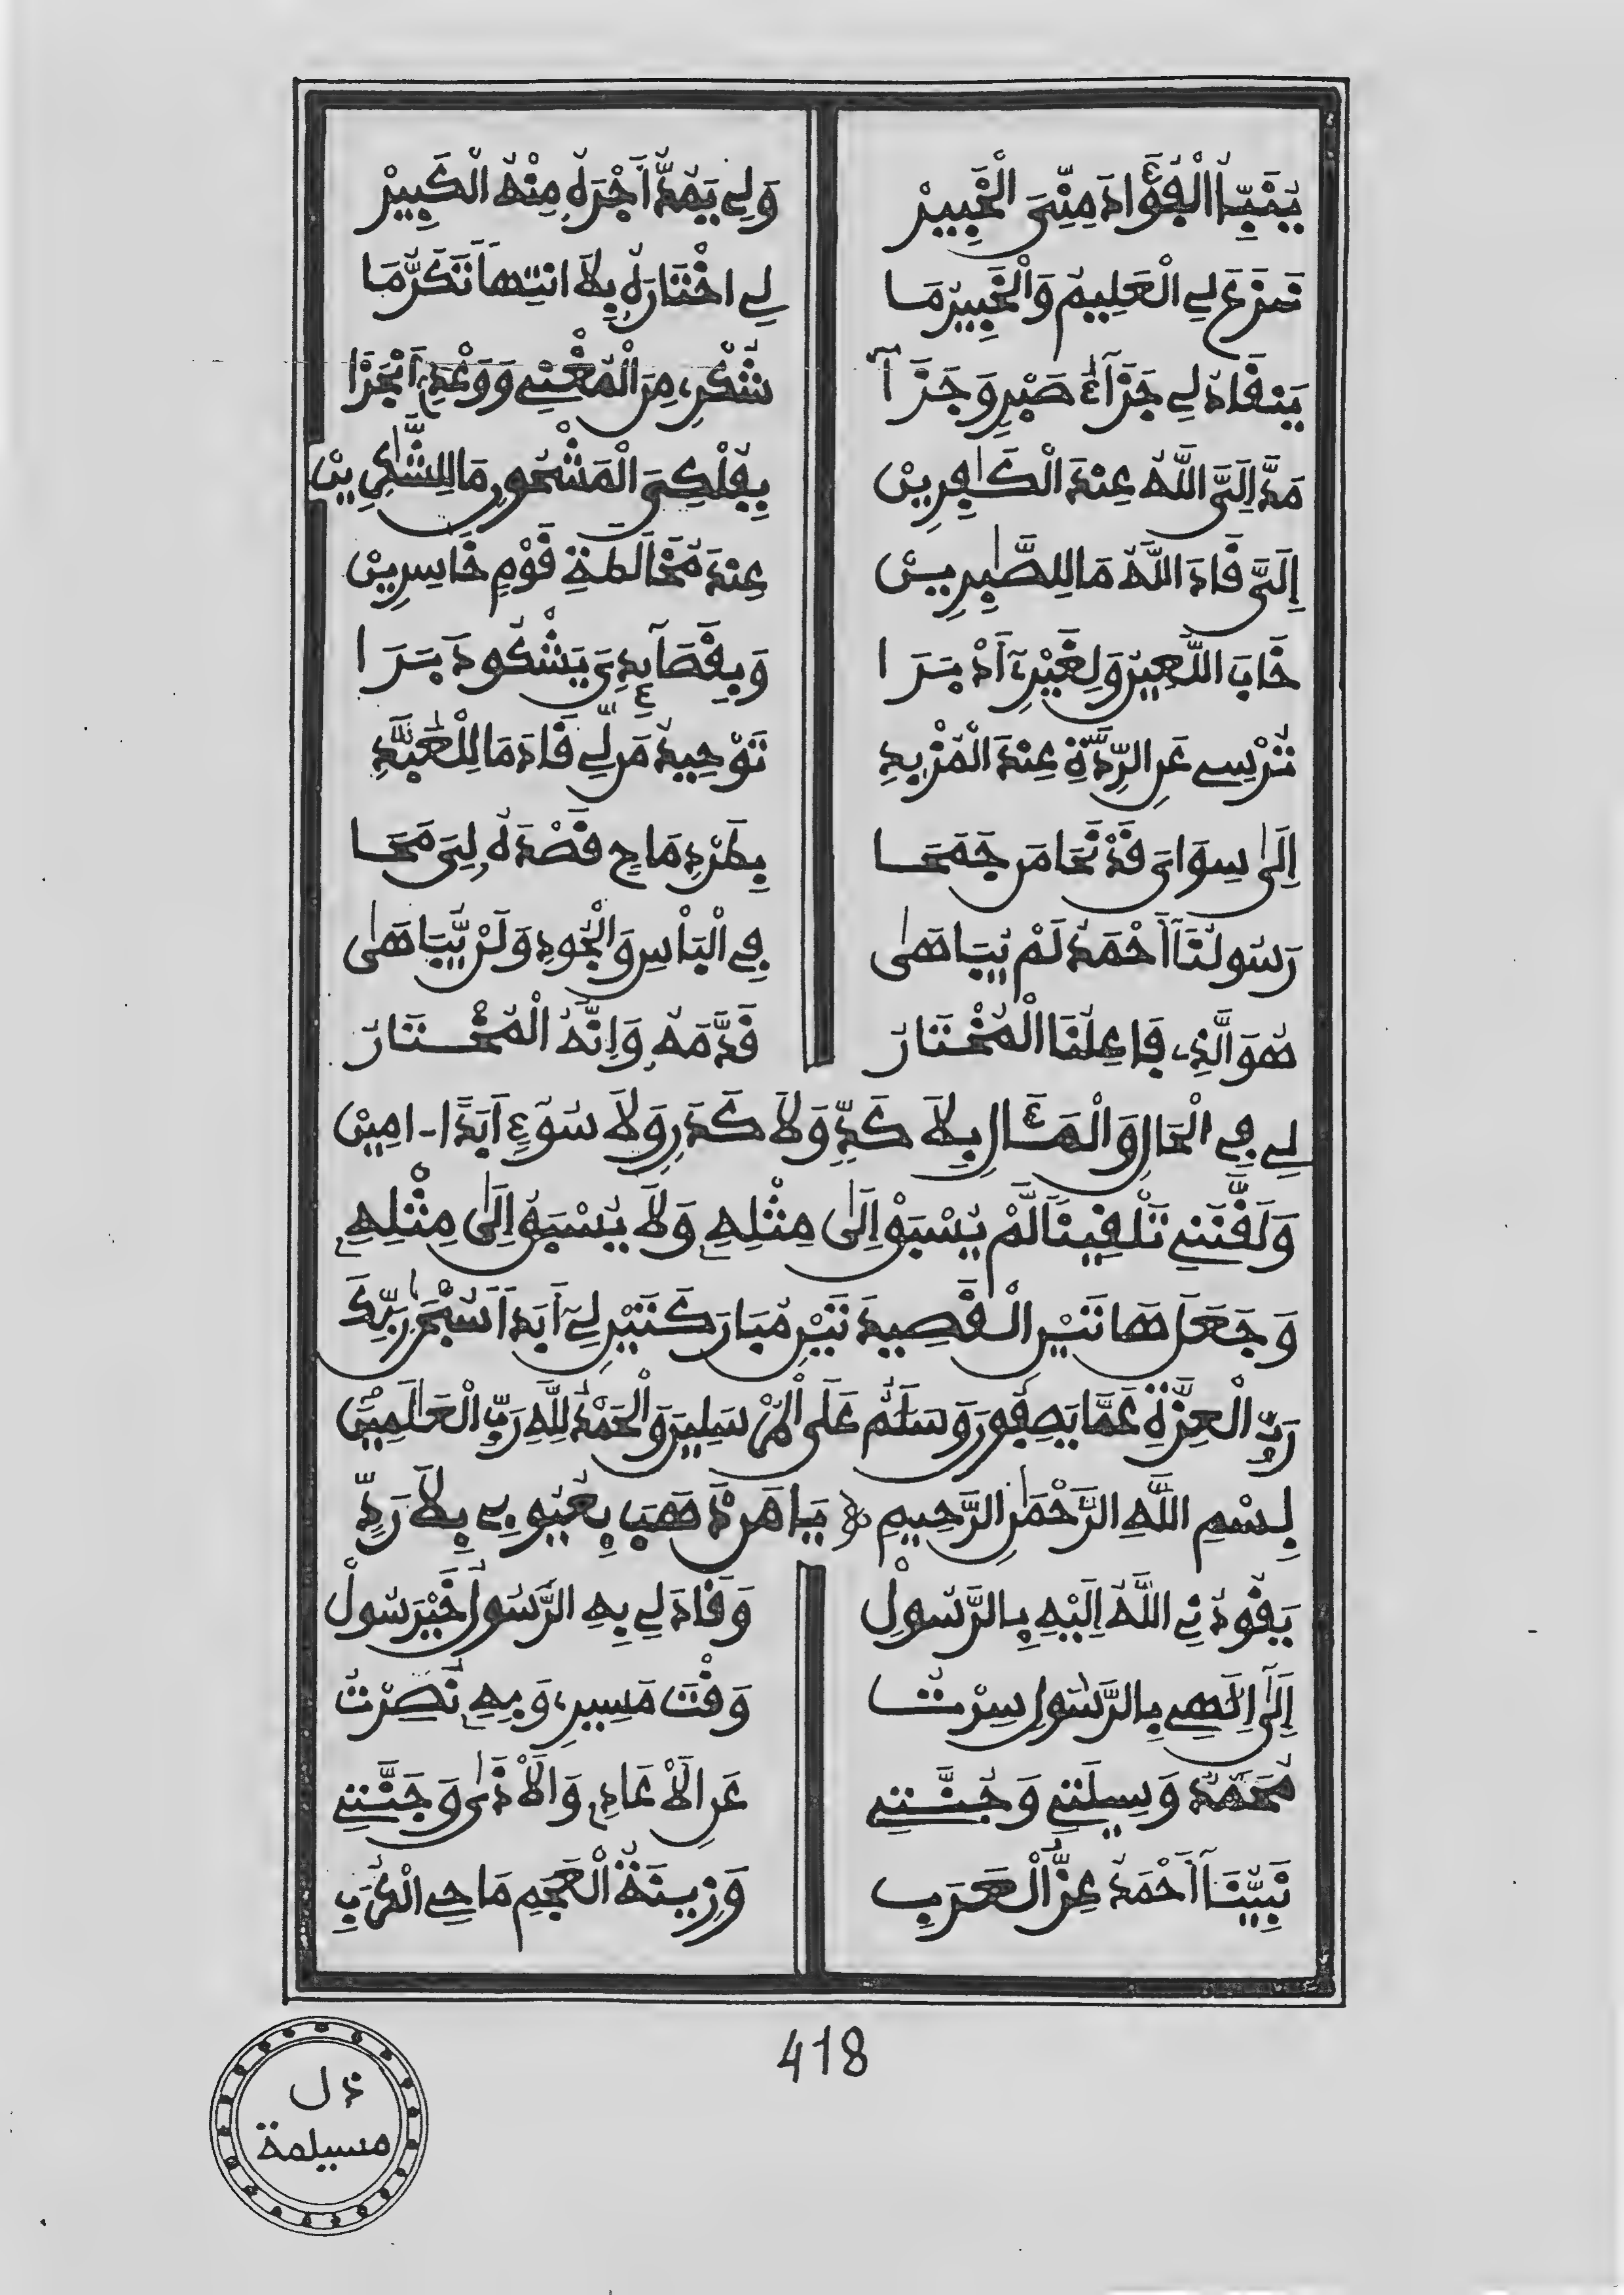 يُنَبِّئُ الْفُؤَادَ مِنِّيَ الْخَبِيرْ وَلِي يَمُدُّ أَجْرَهُ مِنْهُ الْكَبِيرْ
لِي الْعَلِيمُ وَالْخَبِيرُ مَا لِي اخْتَارَهُ بِلَا انْتِهَا تَكَرُّمَا
يَنْقَادُ لِي جَزَاءُ صَبْرِ وَجَزَا شُكْرِي مِنَ الْمُغْنِي وَوَعْدِي أَنْجَزَا
مَدَّ إِلَيَّ اللَّهُ عِنْدَ الْكَافِرِينْ بِفُلْكِيَ الْمَشْحُونِ مَا لِلشَّاكِرِينْ
إِلَيَّ قَادَ اللَّهُ مَا لِلصَّابِرِينْ عِنْدَ مُخَالَطَةِ قَوْمٍ خَاسِرِينْ
خَابَ اللَّعِينُ وَلِغَيْرِي أَدْبَرَا وَبِقَصَائِدِي يَشْكُو دَبَرَا
تُرْسِي عَنِ الرِّدَّةِ عِنْدَ الْمَزِيدِ تَوْحِيدُ مَن لِّي قَادَ مَا لِلْعَبِيدِ
إِلَى سِوَايَ قَدْ نَحَا مَن جَمَحَا بِطَرْدِ مَاحٍ قَصْدُهُ لِيَ مَحَا
رَسُولُنَا أَحْمَدُ لَمْ يُبَاهَى فِي الْبَأْسِ وَالْجُودِ وَلَنْ يُبَاهَى
هُوَ الَّذِي فَاعِلُنَا الْمُخْتَارُ قَدَّمَهُ وَإِنَّهُ الْمُخْتَارُ
لِي فِي الْحَالِ وَالْمَئَالِ بِلَا كَدٍّ وَلَا كَدَرٍ وَلَا سُوءٍ أَبَدًا ـ امِينْ
وَلَقَّنَنِي تَلْقِينًا لَّمْ يُسْبَقْ إِلَى مِثْلِهِ وَلَا يُسْبَقُ إِلَى مِثْلِهِ
وَجَعَلَ هَاتَيْنِ الْقَصِيدَتَيْنِ مُبَارَكَتَيْنِ لِي أَبَدًا سُبْحَانَ رَبِّكَ
رَبِّ الْعِزَّةِ عَمَّا يَصِفُونَ وَسَلَامٌ عَلَى الْمُرْسَلِينَ وَالْحَمْدُ لِلَّهِ رَبِّ الْعَالَمِينَ
بِسْمِ اللَّهِ الرَّحْمَٰنِ الرَّحِيمِ يَا مَن
يَقُودُنِي اللَّهُ إِلَيْهِ بِالرَّسُولْ وَقَادَ لِي بِهِ الرَّسُولُ خَيْرَ سُولْ
إِلَى إِلَٰهِي بِالرَّسُولِ سِرْتُ وَقْتَ مَسِيرِي وَبِهِ نُصِرْتُ
مُحَمَّدٌ وَسِيلَتِي وَجُنَّتِي عَنِ الْأَعَادِي وَالْأَذَى وَجَنَّتِي
نَبِيُّنَا أَحْمَدُ عِزُّ الْعَرَبِ وَزِينَةُ الْعَجَمِ مَاحِي الْكُرَبِ
418
دل
مسيلمة